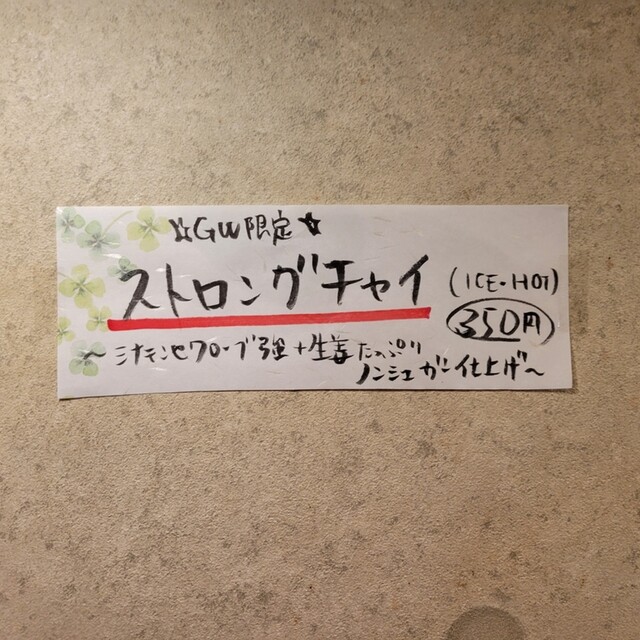 ☆GW限定☆
ストロングチャイ
(ICE・HOT)
350円
〜シナモンセクローブ強+生姜たっぷり
ノンシュガー仕上げ〜